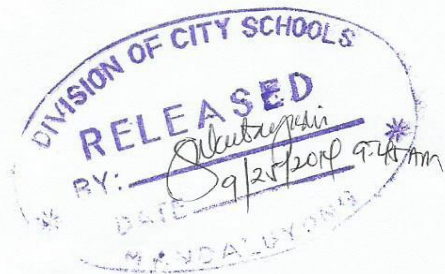 DIVISION OF CITY SCHOOLS
RELEASED
BY:
DATE 9/25/2014 9:45 AM
MANDALUYONG